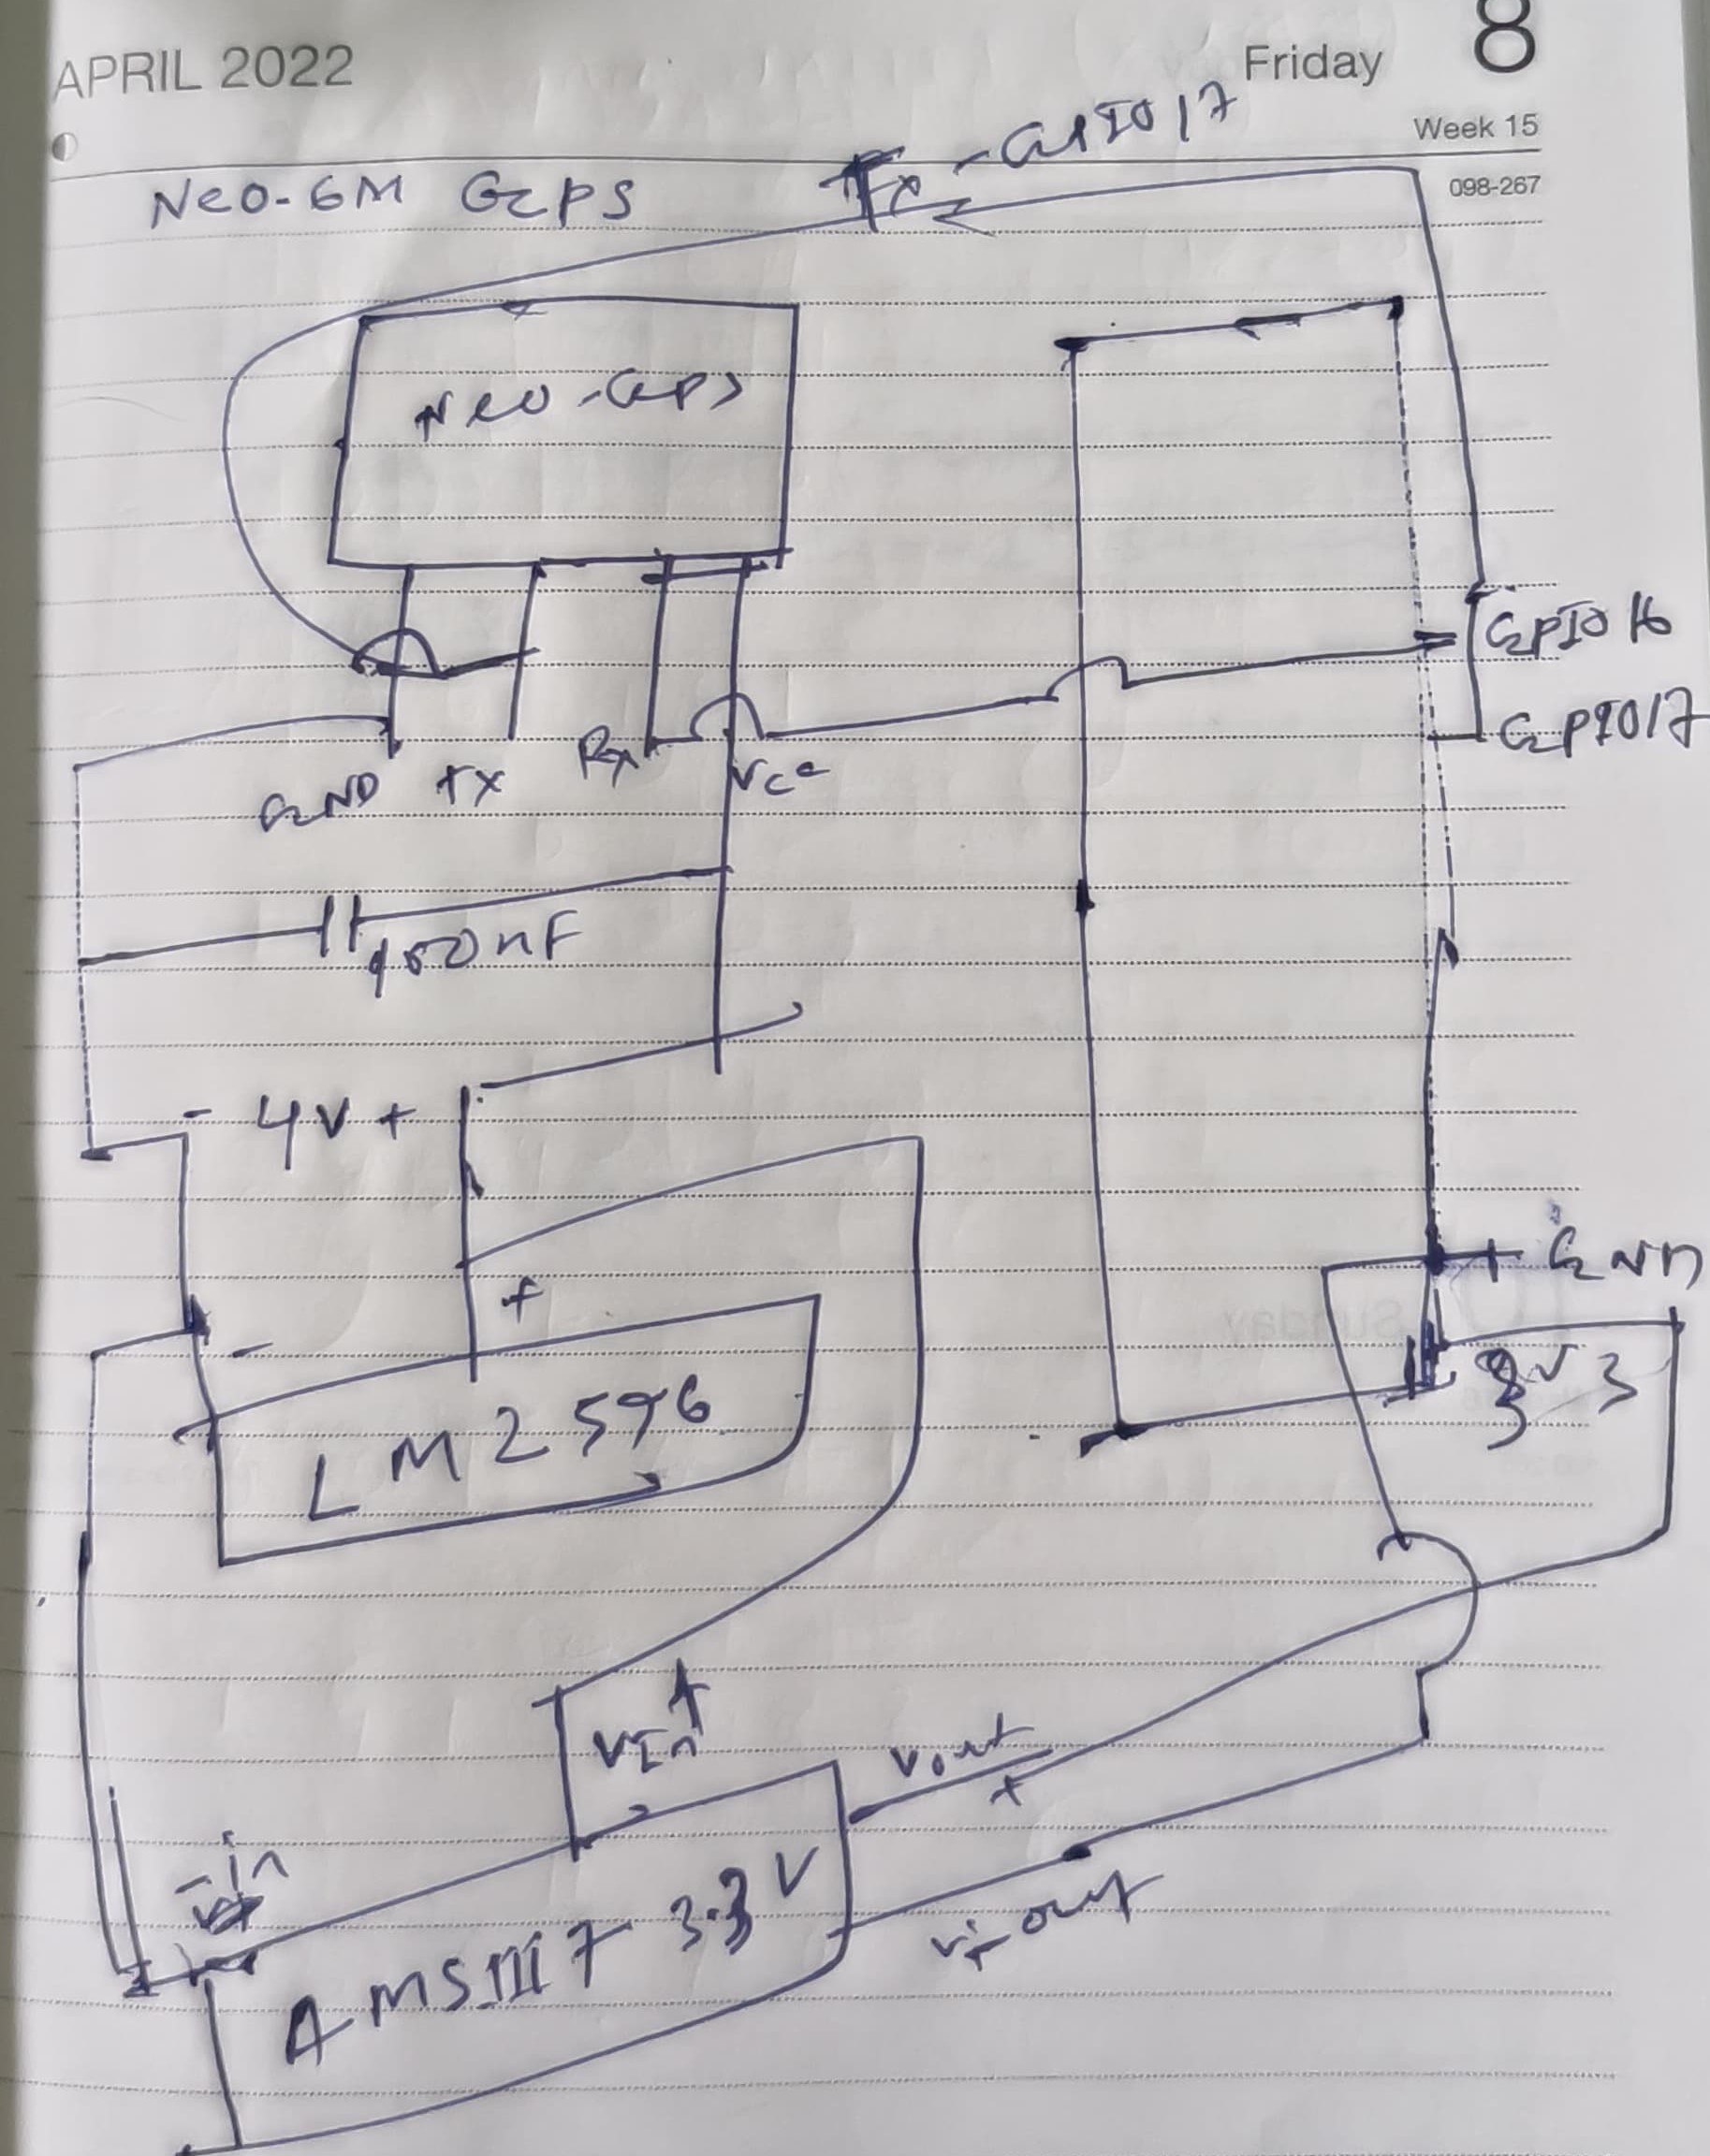 APRIL 2022
Friday 8
Week 15
098-267
Tx - GPIO 17
Neo-6M GPS
Neo-GPS
GPIO 16
GPIO17
GND TX Rx Vcc
100nF
- 4V +
+
-
GND
3V3
LM2596
VIn +
Vout
+
-in
V- out
AMS1117 3.3V